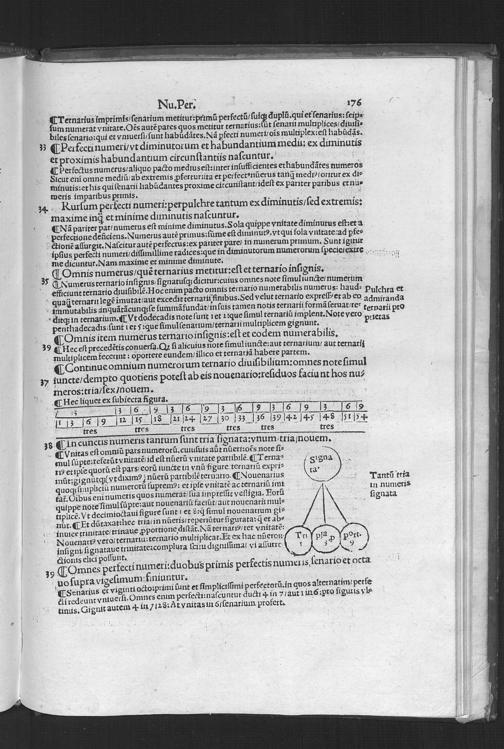 Nu. Per. 176
¶Ternarius imprimis/senarium metitur: primū perfectū/suiq; duplū. qui et senarius: seip-
sum numerat vnitate. Oēs autē pares quos metitur ternarius: sūt senarii multiplices/diuisi-
biles senario: qui et vniuersi/sunt habūdātes. Nā pfecti numeri/ois multiplex: est habūdās.
33 ¶Perfecti numeri/vt diminutorum et habundantium medii: ex diminutis
et proximis habundantium circunstantiis nascuntur.
¶Perfectus numerus/aliquo pacto medius est: inter insufficientes et habundātes numeros
minutis: et his qui senarii habūdantes proxime circunstant: idest ex pariter paribus et nu-
meris imparibus primis.
34 Rursum perfecti numeri: perpulchre tantum ex diminutis/sed extremis:
maxime inq̄ et minime diminutis nascuntur.
¶Nā pariter par/numerus est minime diminutus. Sola quippe vnitate diminutus est: et a
perfectione deficiens. Numerus autē primus: sume est diminut⁹. vt qui sola vnitate: ad pfe-
ctionē assurgit. Nascitur autē perfectus: ex pariter pare/in numerum primum. Sunt igitur
ipsius perfecti numeri: dissimillime radices: que in diminutorum numerorum specie/extre
me dicuntur. Nam maxime et minime diminute.
35 ¶Omnis numerus/quē ternarius metitur: est et ternario insignis.
¶Numerus ternario insignis: signatusq; dicitur: cuius omnes note simul iuncte numerum
efficiunt ternario diuisibilē. Hoc enim pacto omnis ternario numerabilis numerus: haud-
quaq̄ ternarii legē imutat: aut excedit ternarii finibus. Sed velut ternario expresse: et ab eo
ditq; in ternarium. ¶Vt dodecadis note sunt 1 et 2: que simul ternariū implent. Note vero
penthadecadis: sunt 1 et 5: que simul senarium/ternarii multiplicem gignunt.
Pulchra et
admiranda
ternarii pro
prietas
¶Omnis item numerus ternario insignis: est et eodem numerabilis.
39 ¶Hec est precedētis conuersa. Qz si alicuius note simul iuncte: aut ternarium/aut ternarii
multiplicem fecerint: oportere eundem/illico et ternariū habere partem.
37 ¶Continue omnium numerorum ternario diuisibilium: omnes note simul
iuncte/dempto quotiens potest ab eis nouenario: residuos faciunt hos nu-
meros: tria/sex/nouem.
¶Hec liquer ex subiecta figura.
3 6 9 3 6 9 3 6 9 3 6 9 3 6 9
1 3 6 9 12 15 18 21 24 27 30 33 36 39 42 45 48 51 54
tres tres tres tres tres
38 ¶In cunctis numeris tantum sunt tria signata: vnum/tria/nouem.
¶Vnitas est omniū pars numerorū. cuiusuis aut nūeri: oēs note si-
mul supte: referūt vnitatē: id est nūerū vnitate partibilē. ¶Terna-
ri⁹ et iple quorū est pars: eorū iuncte in vnū figure ternariū expri-
quoq; si iplicit numerorū supremu⁹: et iple vnitatē ac ternariū imi
tat⁹. Oibus eni numeris quos numerat: sua impressit vestigia. Eorū
quippe note simul supte: aut nouenariū faciūt: aut nouenarii mul-
nut. ¶Et dūtaxat: hec tria in nūeris/reperiūtur signata: q̄ et ab
inuicē trinitate/trinaue pportione distāt. Nā ternari⁹: ter vnitatē:
Nouenari⁹ vero: ternarium ternario multiplicat. Ex ex hac nūeron
insigni/signataue trinitate: complura seriu dignissima: vi assurre
ctionis elici possunt.
Signa
ta.
Tri 1
pla 3 p
port. 9
Tantū tria
in numeris
signata
39 ¶Omnes perfecti numeri: duobus primis perfectis numeris, senario et octa
uo supra vigesimum: finiuntur.
¶Senarius et viginti octo/primi sunt et simplicissimi perfectorū. in quos alternatim/perfe
cti redeunt vniuersi. Omnes enim perfecti: nascuntur ductu 4 in 7/aut 1 in 6: pro figuris vl-
timis. Gignit autem 4 in 7/28: At vnitas in 6/senarium profert.